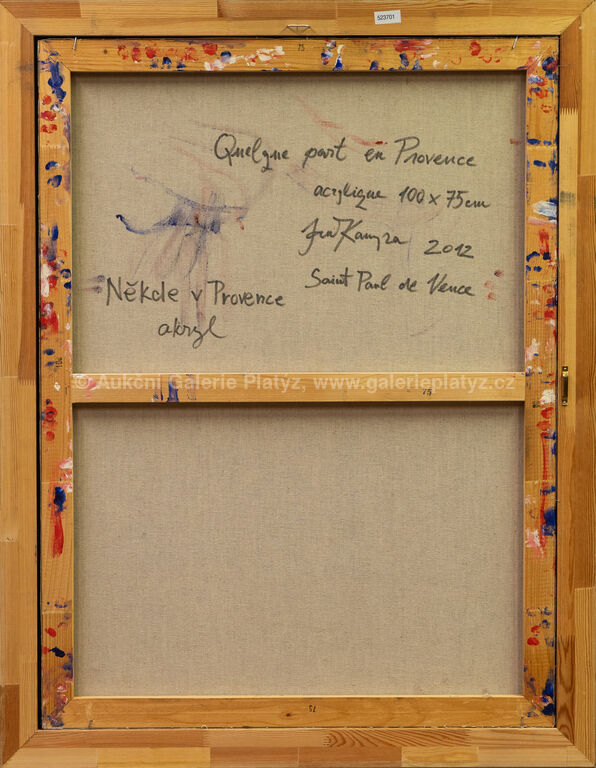 523701
75
Quelque part en Provence
acrylique 100 x 75cm
2012
Saint Paul de Vence
Někde v Provence
akryl
© Aukční Galerie Platýz, www.galerieplatyz.cz
75
75